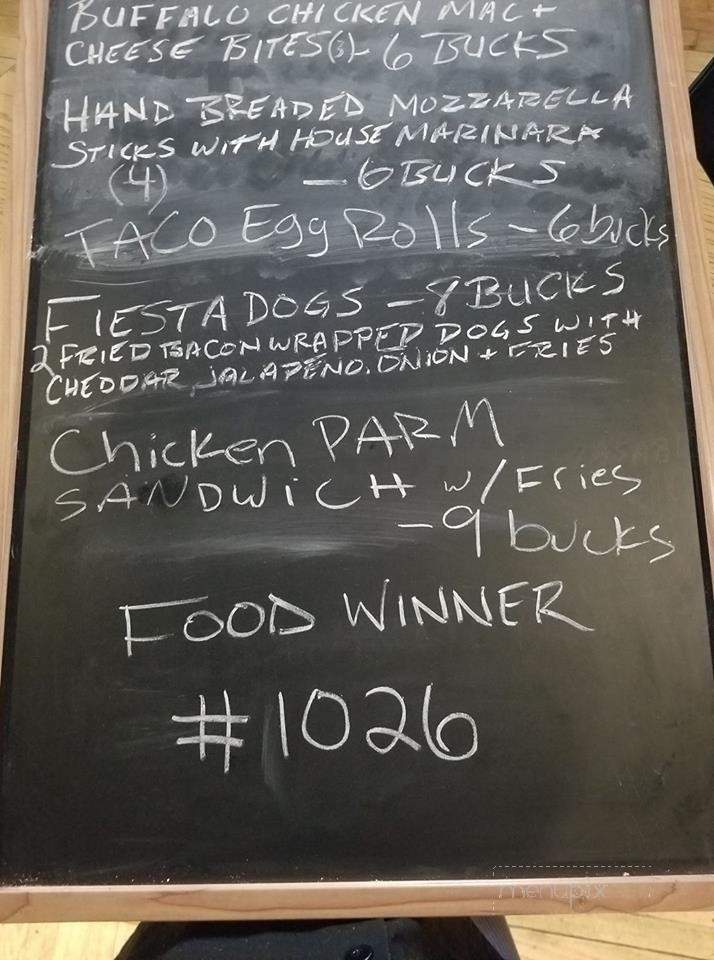 BUFFALO CHICKEN MAC +
CHEESE BITES(3)- 6 BUCKS
HAND BREADED MOZZARELLA
STICKS WITH HOUSE MARINARA
(4) - 6 BUCKS
TACO Egg Rolls - 6 bucks
FIESTA DOGS - 8 BUCKS
2 FRIED BACON WRAPPED DOGS WITH
CHEDDAR, JALAPENO, ONION + FRIES
Chicken PARM
SANDWICH w/ Fries
- 9 bucks
FOOD WINNER
#1026
menupix